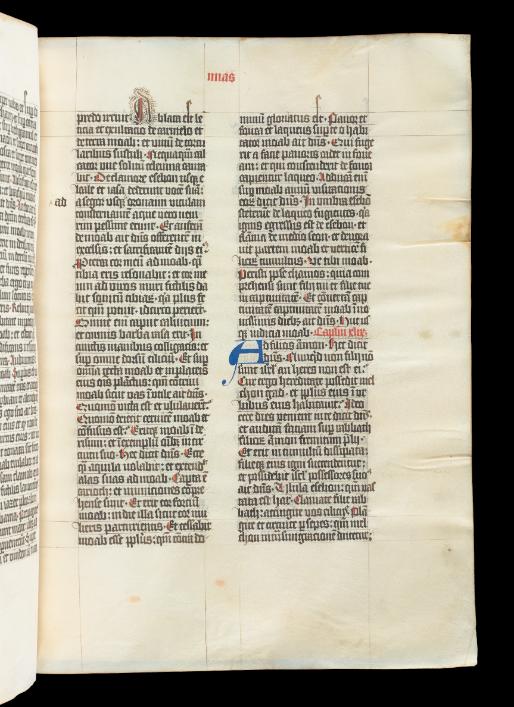 mias
predo irruit · Ablata est le
ticia et exultacio de carmelo et
de terra moab: et vinū de torcu
laribus sustuli. Nequaquā cal
cator uve solitū celeuma canta
bit · De clamore esebon usq; e
leale et iasa dederunt vocē suā:
a segor usq; oronaim vitulam
ad
rim pessime erunt · Et auferā
de moab ait dn̄s offerentē in
excelsis: et sacrificantē diis eiꝰ.
cor meū ad moab: q̄si
tibia eris resonabit: et cor me
um ad viros muri fictilis da
bit sonitū tibiaꝝ: q̄a plus fe
cit q̄m potuit: idcirco perierūt.
Omne eni caput caluicium:
et omnis barba rasa erit · In
cunctis manibus colligatio: et
sup omne dorsū ciliciū. Et sup
omnia tecta moab et in plateis
eius oīs planctus: qm̄ contriui
moab sicut vas inutile ait dn̄s.
Quomō victa est et ululauerūt:
Quomō deiecit ceruicē moab et
confusus est. Eritq; moab ī de
risum: et ī exemplū oībꝫ in cir
cuitu suo. Hec dicit dn̄s. Ecce
q̄si aquila volabit: et extendet
alas suas ad moab. Capta ē
carioth: et municiones cōpre
hense sunt. Et erit cor fortiū
moab: in die illa sicut cor mu
lieris parturientis. Et cessabit
moab esse pplūs: qm̄ cont̄ do
minū gloriatus est. Pauor et
fouea et laqueus sup te o habi
tator moab ait dn̄s. Qui fuge
rit a facie pauoris cadet in foue
am: et qui conscenderit de fouea
capietur laqueo. Adducā eni
sup moab annū visitationis
eoꝝ dicit dn̄s. In umbra esebō
steterūt de laqueo fugientes: q̄a
ignis egressus est de esebon: et
flāma de medio seon: et deuora
uit partem moab et verticē fi
lioꝝ tumultus. Ve tibi moab.
Peristi pple chamos: quia com
prehensi sunt filii tui et filie tue
in captiuitatē. Et cōuertā cap
tiuitatē moab in no
uissimis diebꝫ ait dn̄s. Hucusq;
iudicia moab. Caplm̄ xlix.
Ad filios amon. Hec dicit
dn̄s. Nunquid non filii nō
sunt isrl' aut heres non est ei:
Cur ergo hereditate possedit mel
chon gad: et pplūs eiꝰ ī vr
bibus eius habitauit. Ideo
ecce dies veniunt dicit dn̄s:
et auditū faciam sup rabbath
filioꝝ amon fremitum plij.
Et erit in tumulū dissipata:
filieq; eius igni succendentur:
et possidebit isrl' possessores suos
ait dn̄s. Ulula esebon: qm̄ vas
tata est hay. Clamate filie rab
bath: accingite vos ciliciꝫ. Plā
gite et circuite p sepes: qm̄ mel
chon in transmigracionē ducetur: